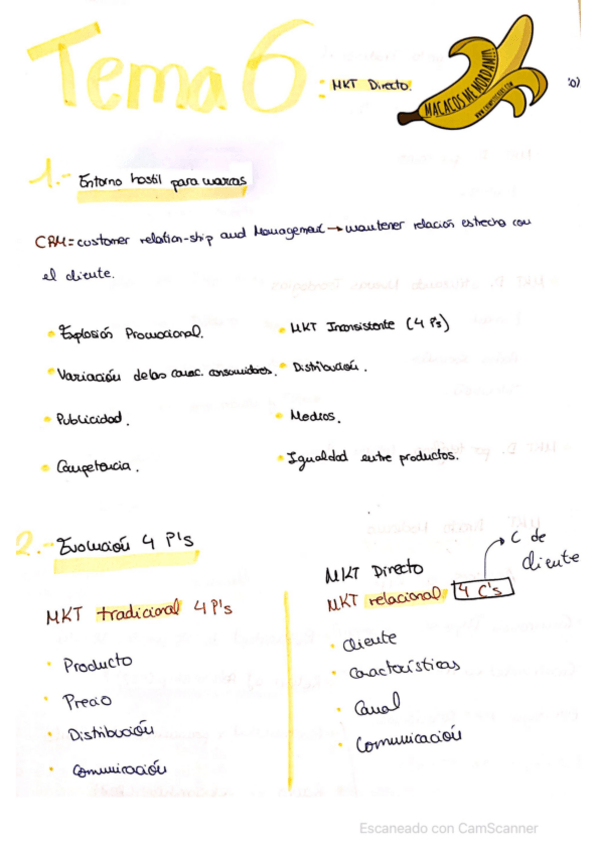 Tema 6
: MKT Directo.
MACACOS ME MORDAM!!!
1.- Entorno hostil para marcas
CRM = customer relation-ship and Management → mantener relación estrecha con
el cliente.
• Explosión Promocional.
• MKT Inconsistente (4 P's)
• Variación de las carac. consumidores.
• Distribución.
• Publicidad.
• Medios.
• Competencia.
• Igualdad entre productos.
2.- Evolución 4 P's
MKT tradicional 4 P's
• Producto
• Precio
• Distribución
• Comunicación
MKT Directo
MKT relacional 4 C's → C de
cliente
• Cliente
• Características
• Canal
• Comunicación
Escaneado con CamScanner